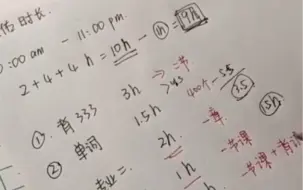 时长.
:00 am - 11:00 pm.
2+4+4 h = 10h - 1h = 9h
① 背 333 3h → 二节
② 单词 1.5h >45
400个 - 3.5
3.5
1.5h
业二. 2h - 章
1h - 节课
- 节课 + 背诵